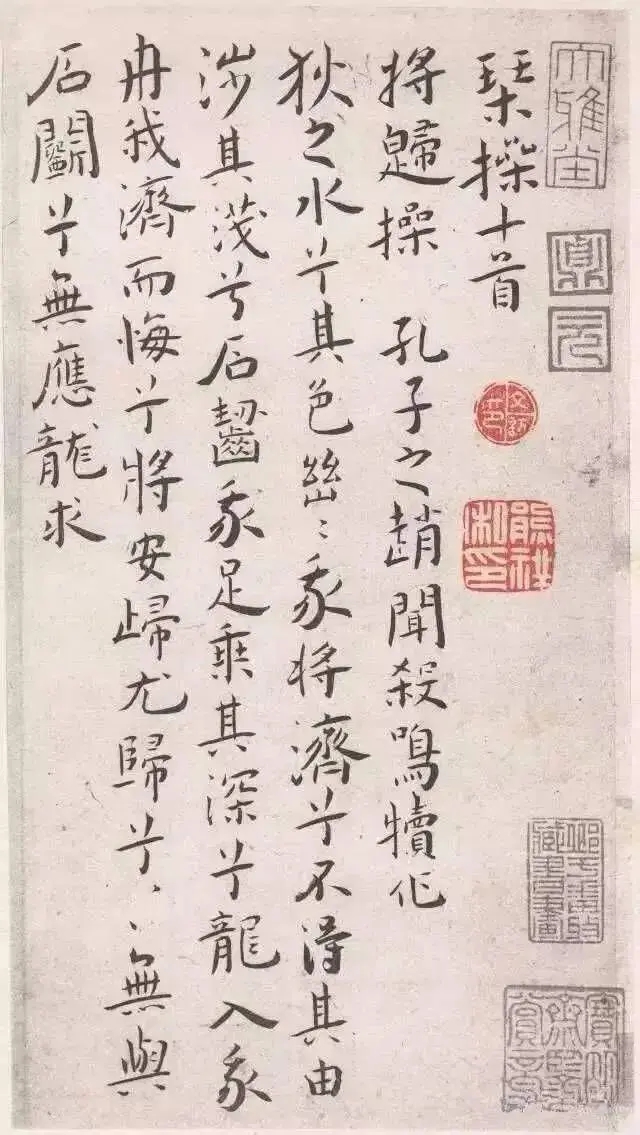 琹操十首
将歸操 孔子之趙聞殺鳴犢作
狄之水兮其色幽〻我将濟兮不得其由
涉其淺兮石齧我足乗其深兮龍入我
舟我濟而悔兮將安歸尤歸兮〻無與
石鬭兮無應龍求
大雅堂